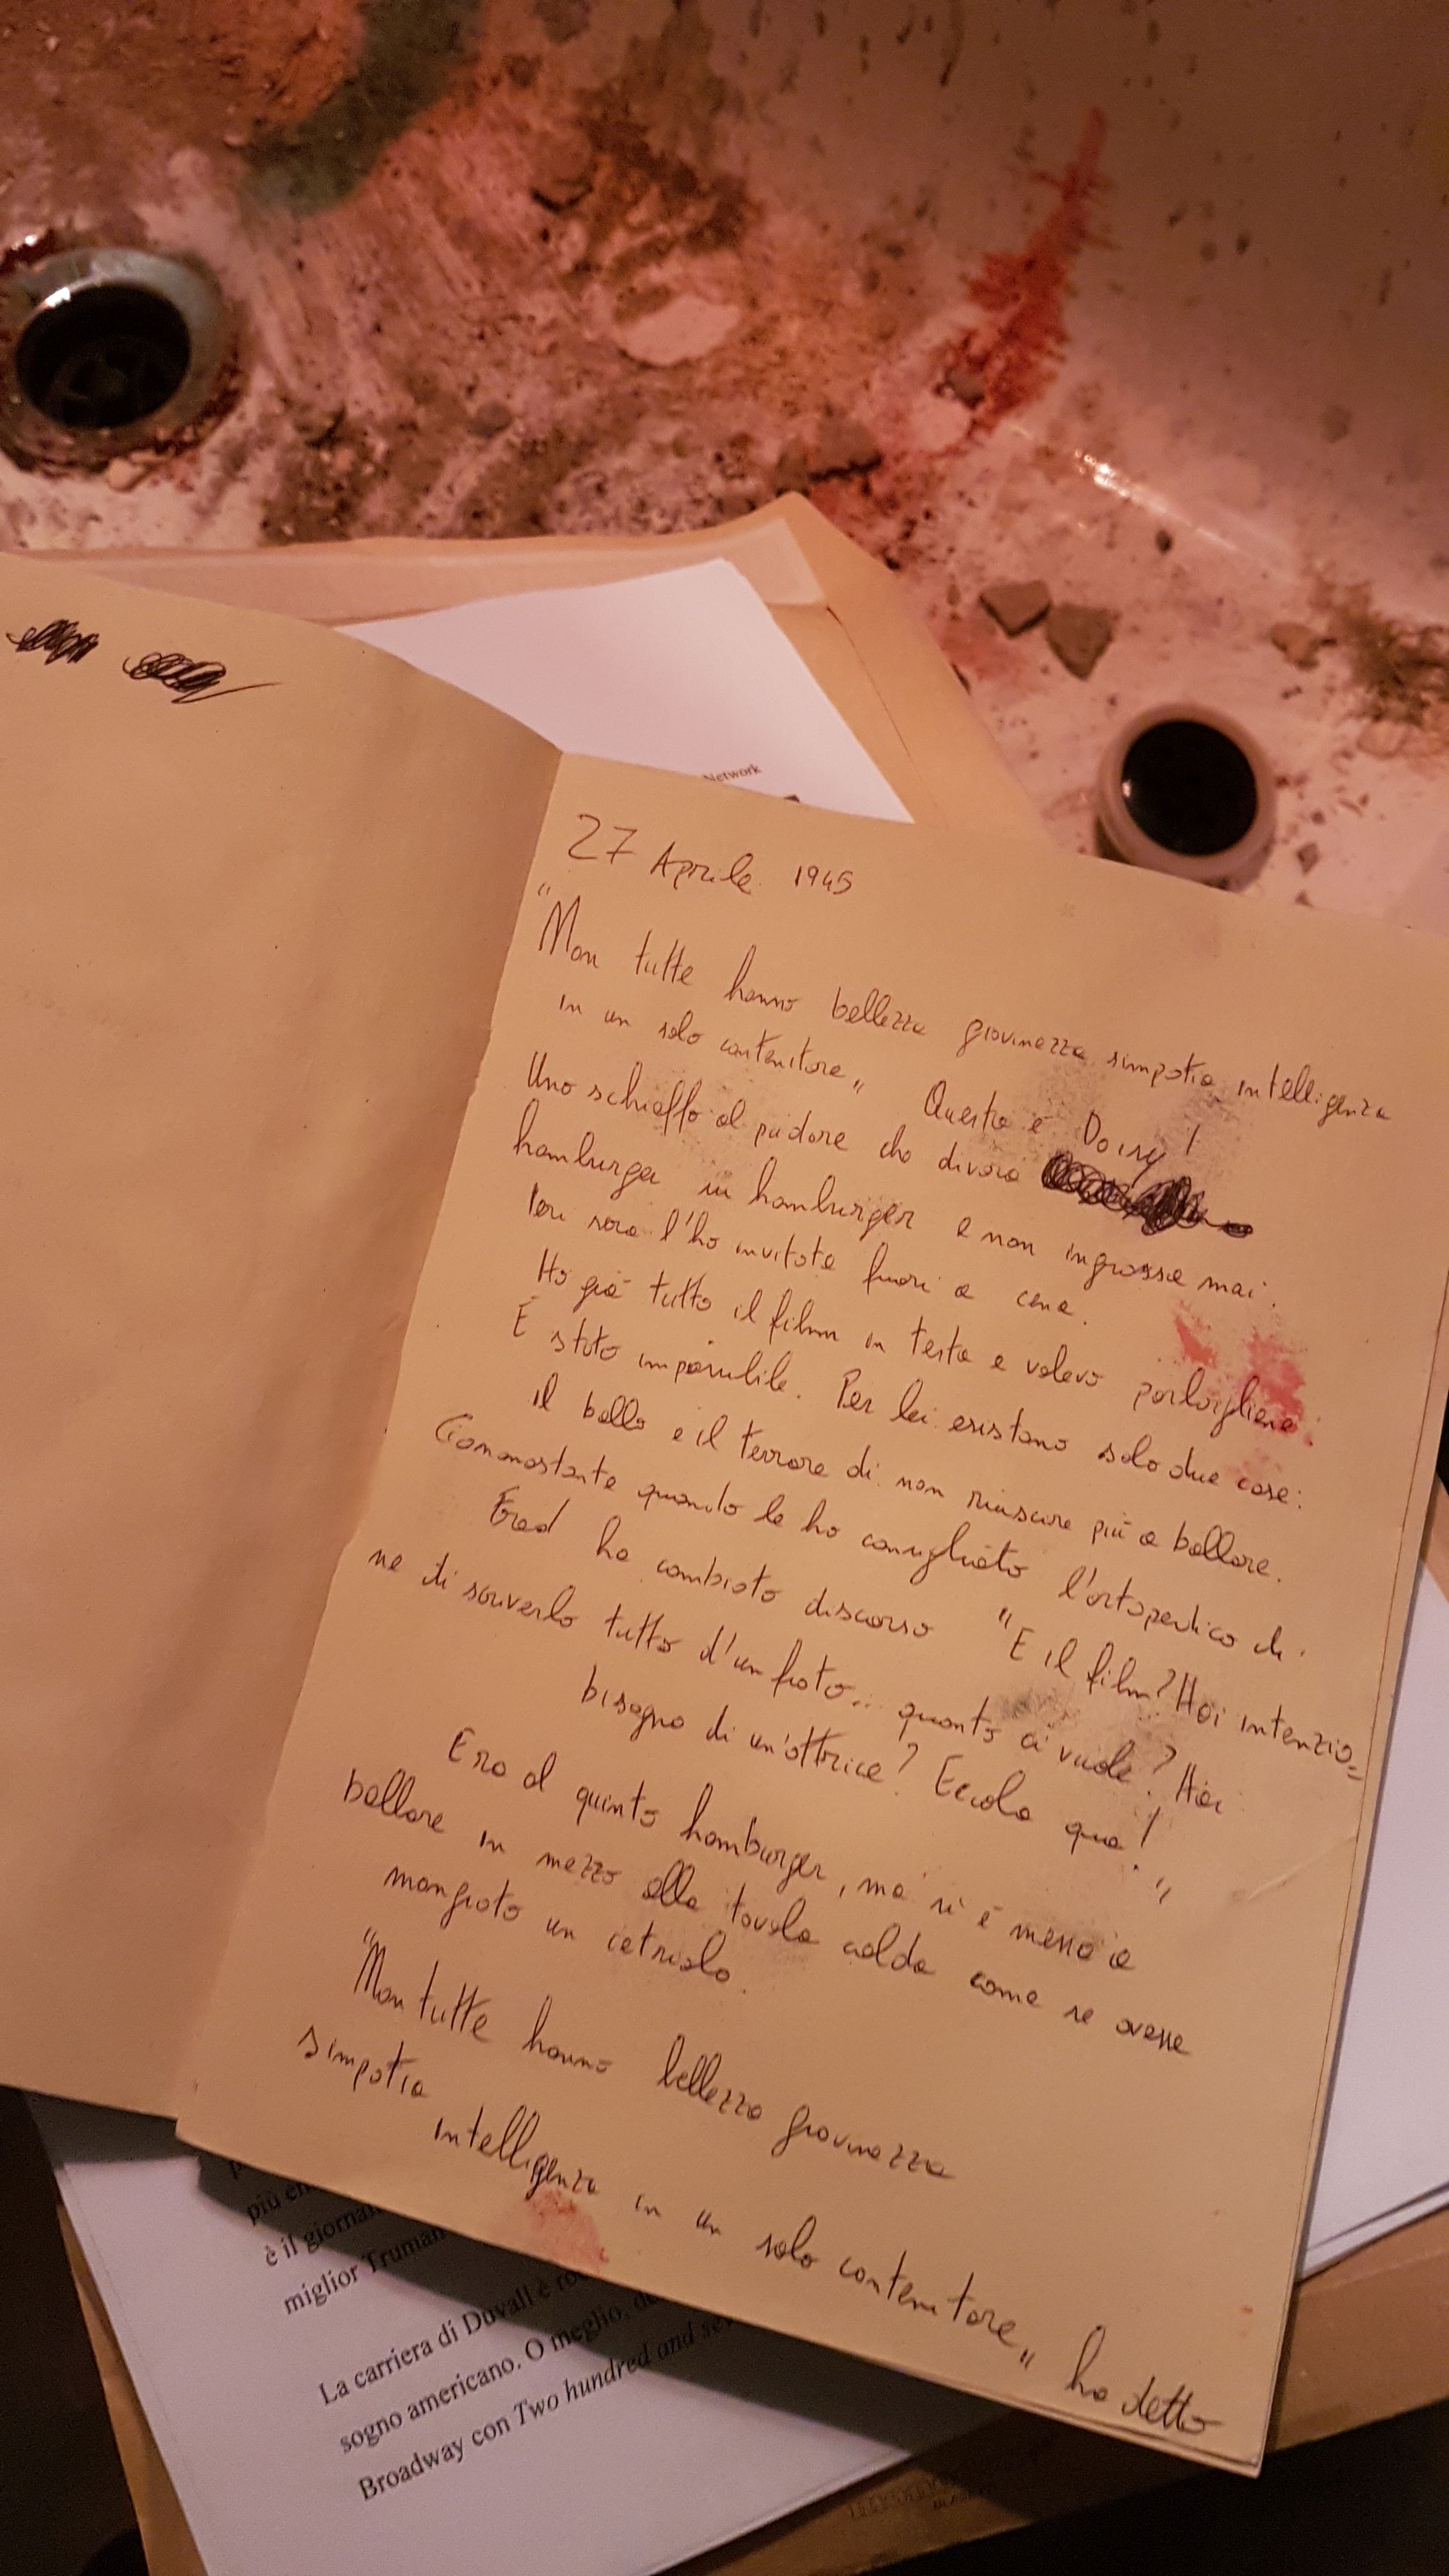 Network
27 Aprile 1945
"Non tutte hanno bellezza giovinezza simpatia intelligenza
in un solo contenitore" Questa è Daisy!
Uno schiaffo al pudore che divora
hamburger su hamburger e non ingrassa mai.
Ieri sera l'ho invitata fuori a cena.
Ho già tutto il film in testa e volevo parlargliene.
È stato impossibile. Per lei esistono solo due cose:
il ballo e il terrore di non riuscire più a ballare.
Ciononostante quando le ho consigliato l'ortopedico di
Fred ha cambiato discorso "E il film? Hai intenzio=
ne di scriverlo tutto d'un fiato... quanto ci vuole? Hai
bisogno di un'attrice? Eccola qua!"
Era al quinto hamburger, ma si è messa a
ballare in mezzo alla tavola calda come se avesse
mangiato un cetriolo.
"Non tutte hanno bellezza giovinezza
simpatia
intelligenza in un solo contenitore" ha detto
più
è il giornal
miglior Truman
La carriera di Duvall è
sogno americano. O meglio, d
Broadway con Two hundred and se